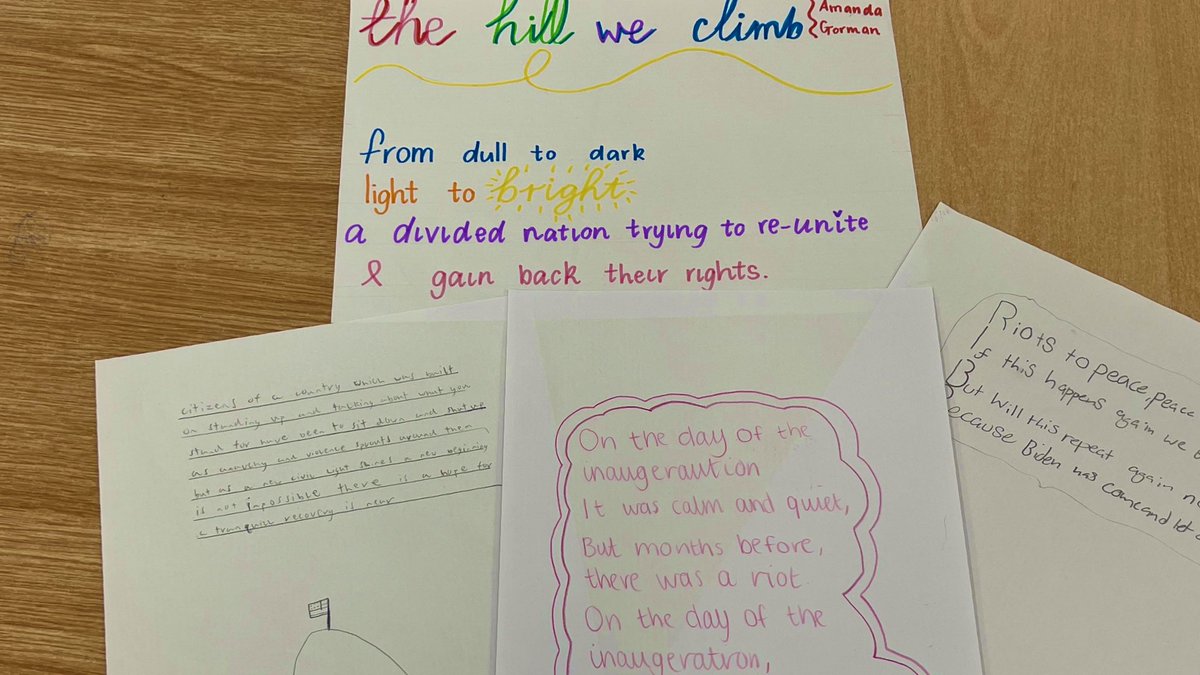 the hill we climb
Amanda
Gorman
from dull to dark
light to bright
a divided nation trying to re-unite
& gain back their rights.
citizens of a country which was built
on standing up and talking about what you
stand for have been to sit down and shut up
as anarchy and violence sprouts around them
but as a new civil light shines a new beginning
is not impossible there is a hope for
a tranquil recovery is near
On the day of the
inaugeraution
It was calm and quiet,
But months before,
there was a riot.
On the day of the
inaugeratron,
Riots to peace, peace
If this happens again we
But will this repeat again
Because Biden has come and let